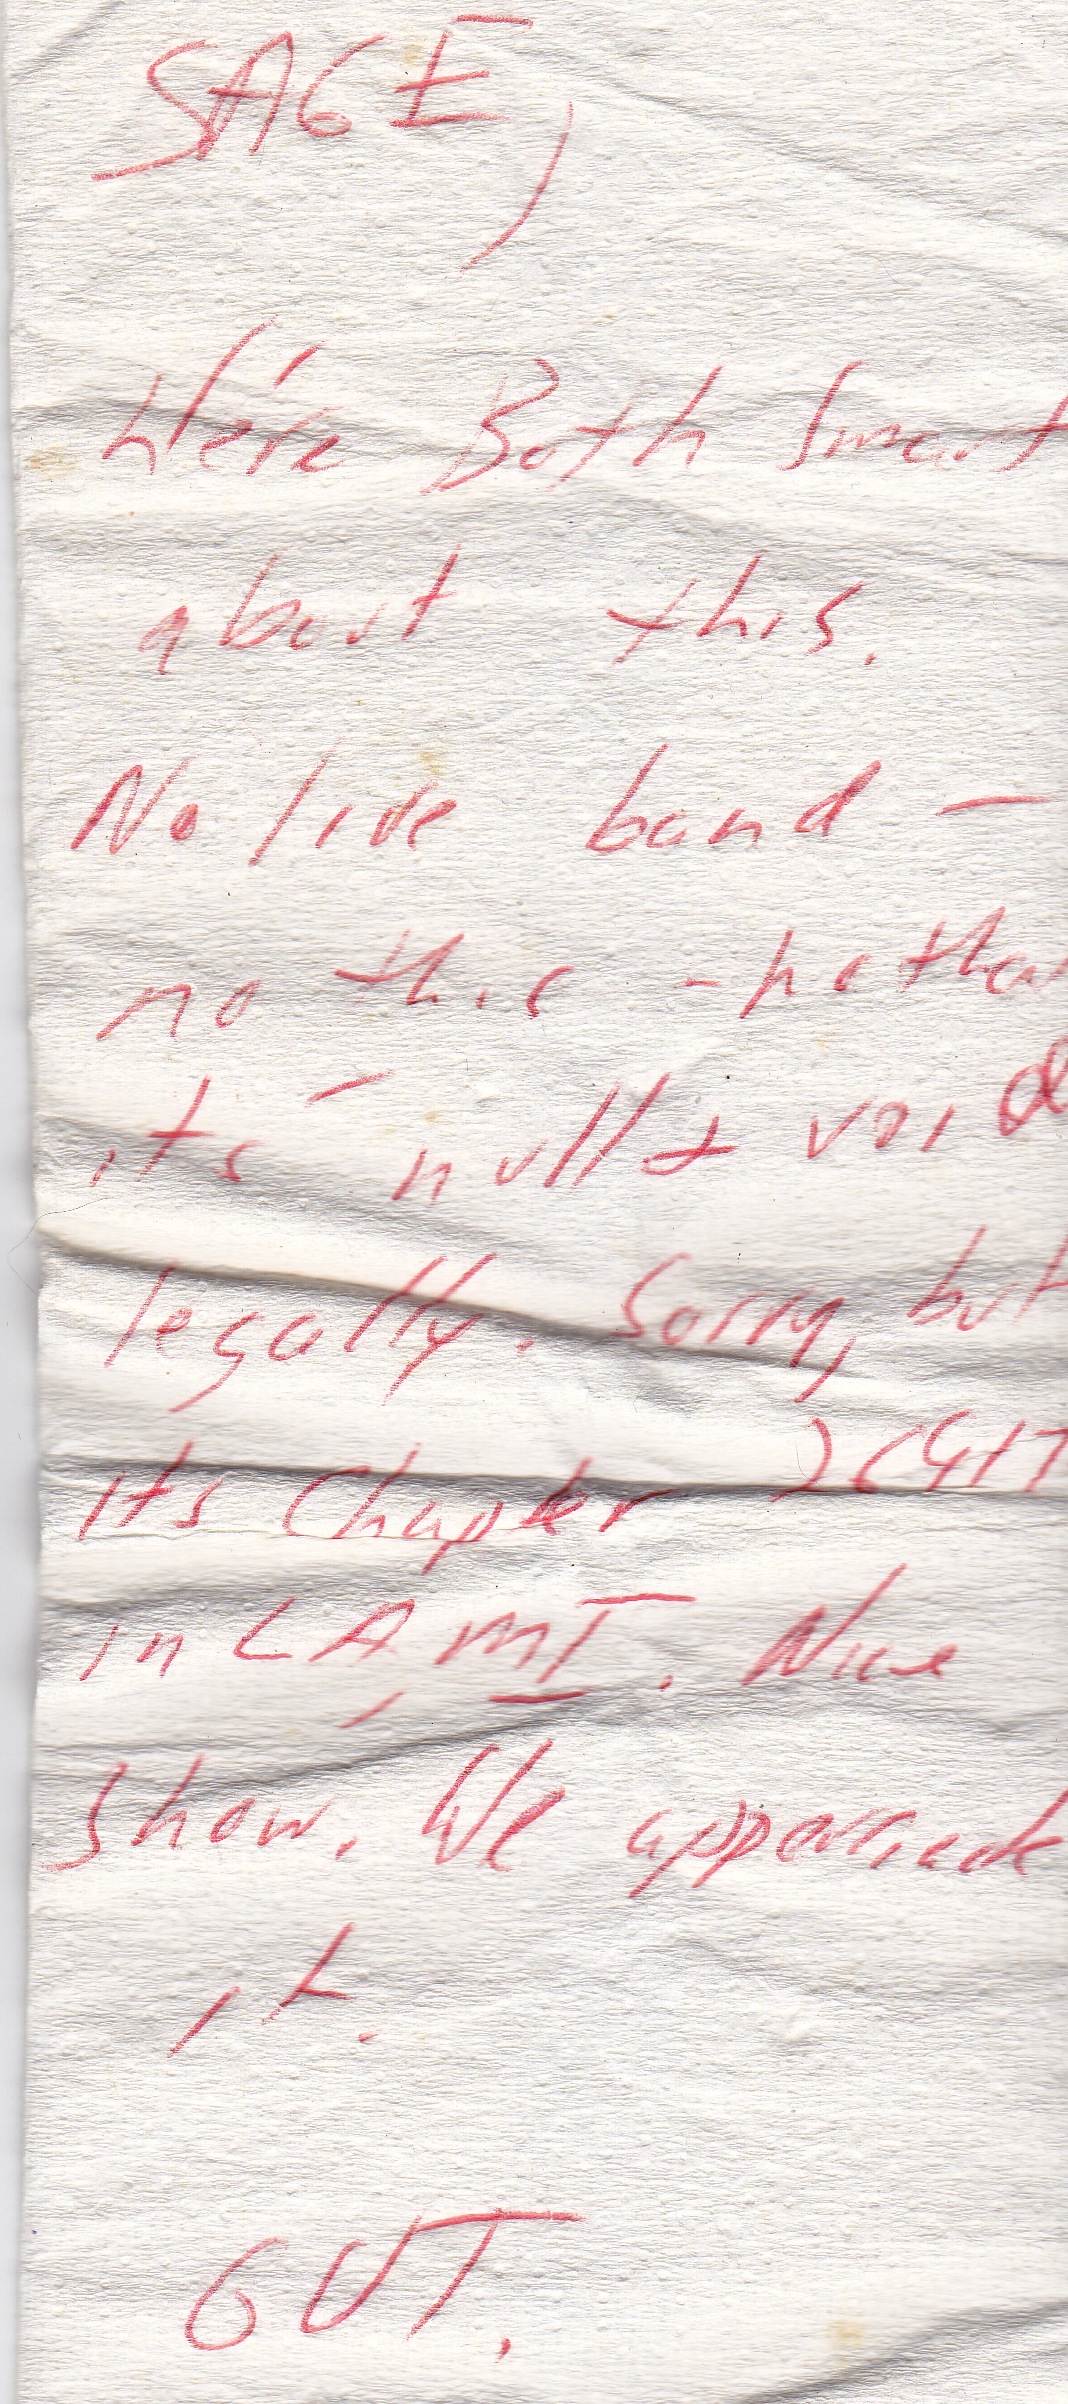 SAGE,
We're Both Smart
about this.
No live band -
no this - no that
its - null + void
legally. Sorry, but
its Chapter
in LA, MI. Nice
show. We apperciade
it.
GUT.